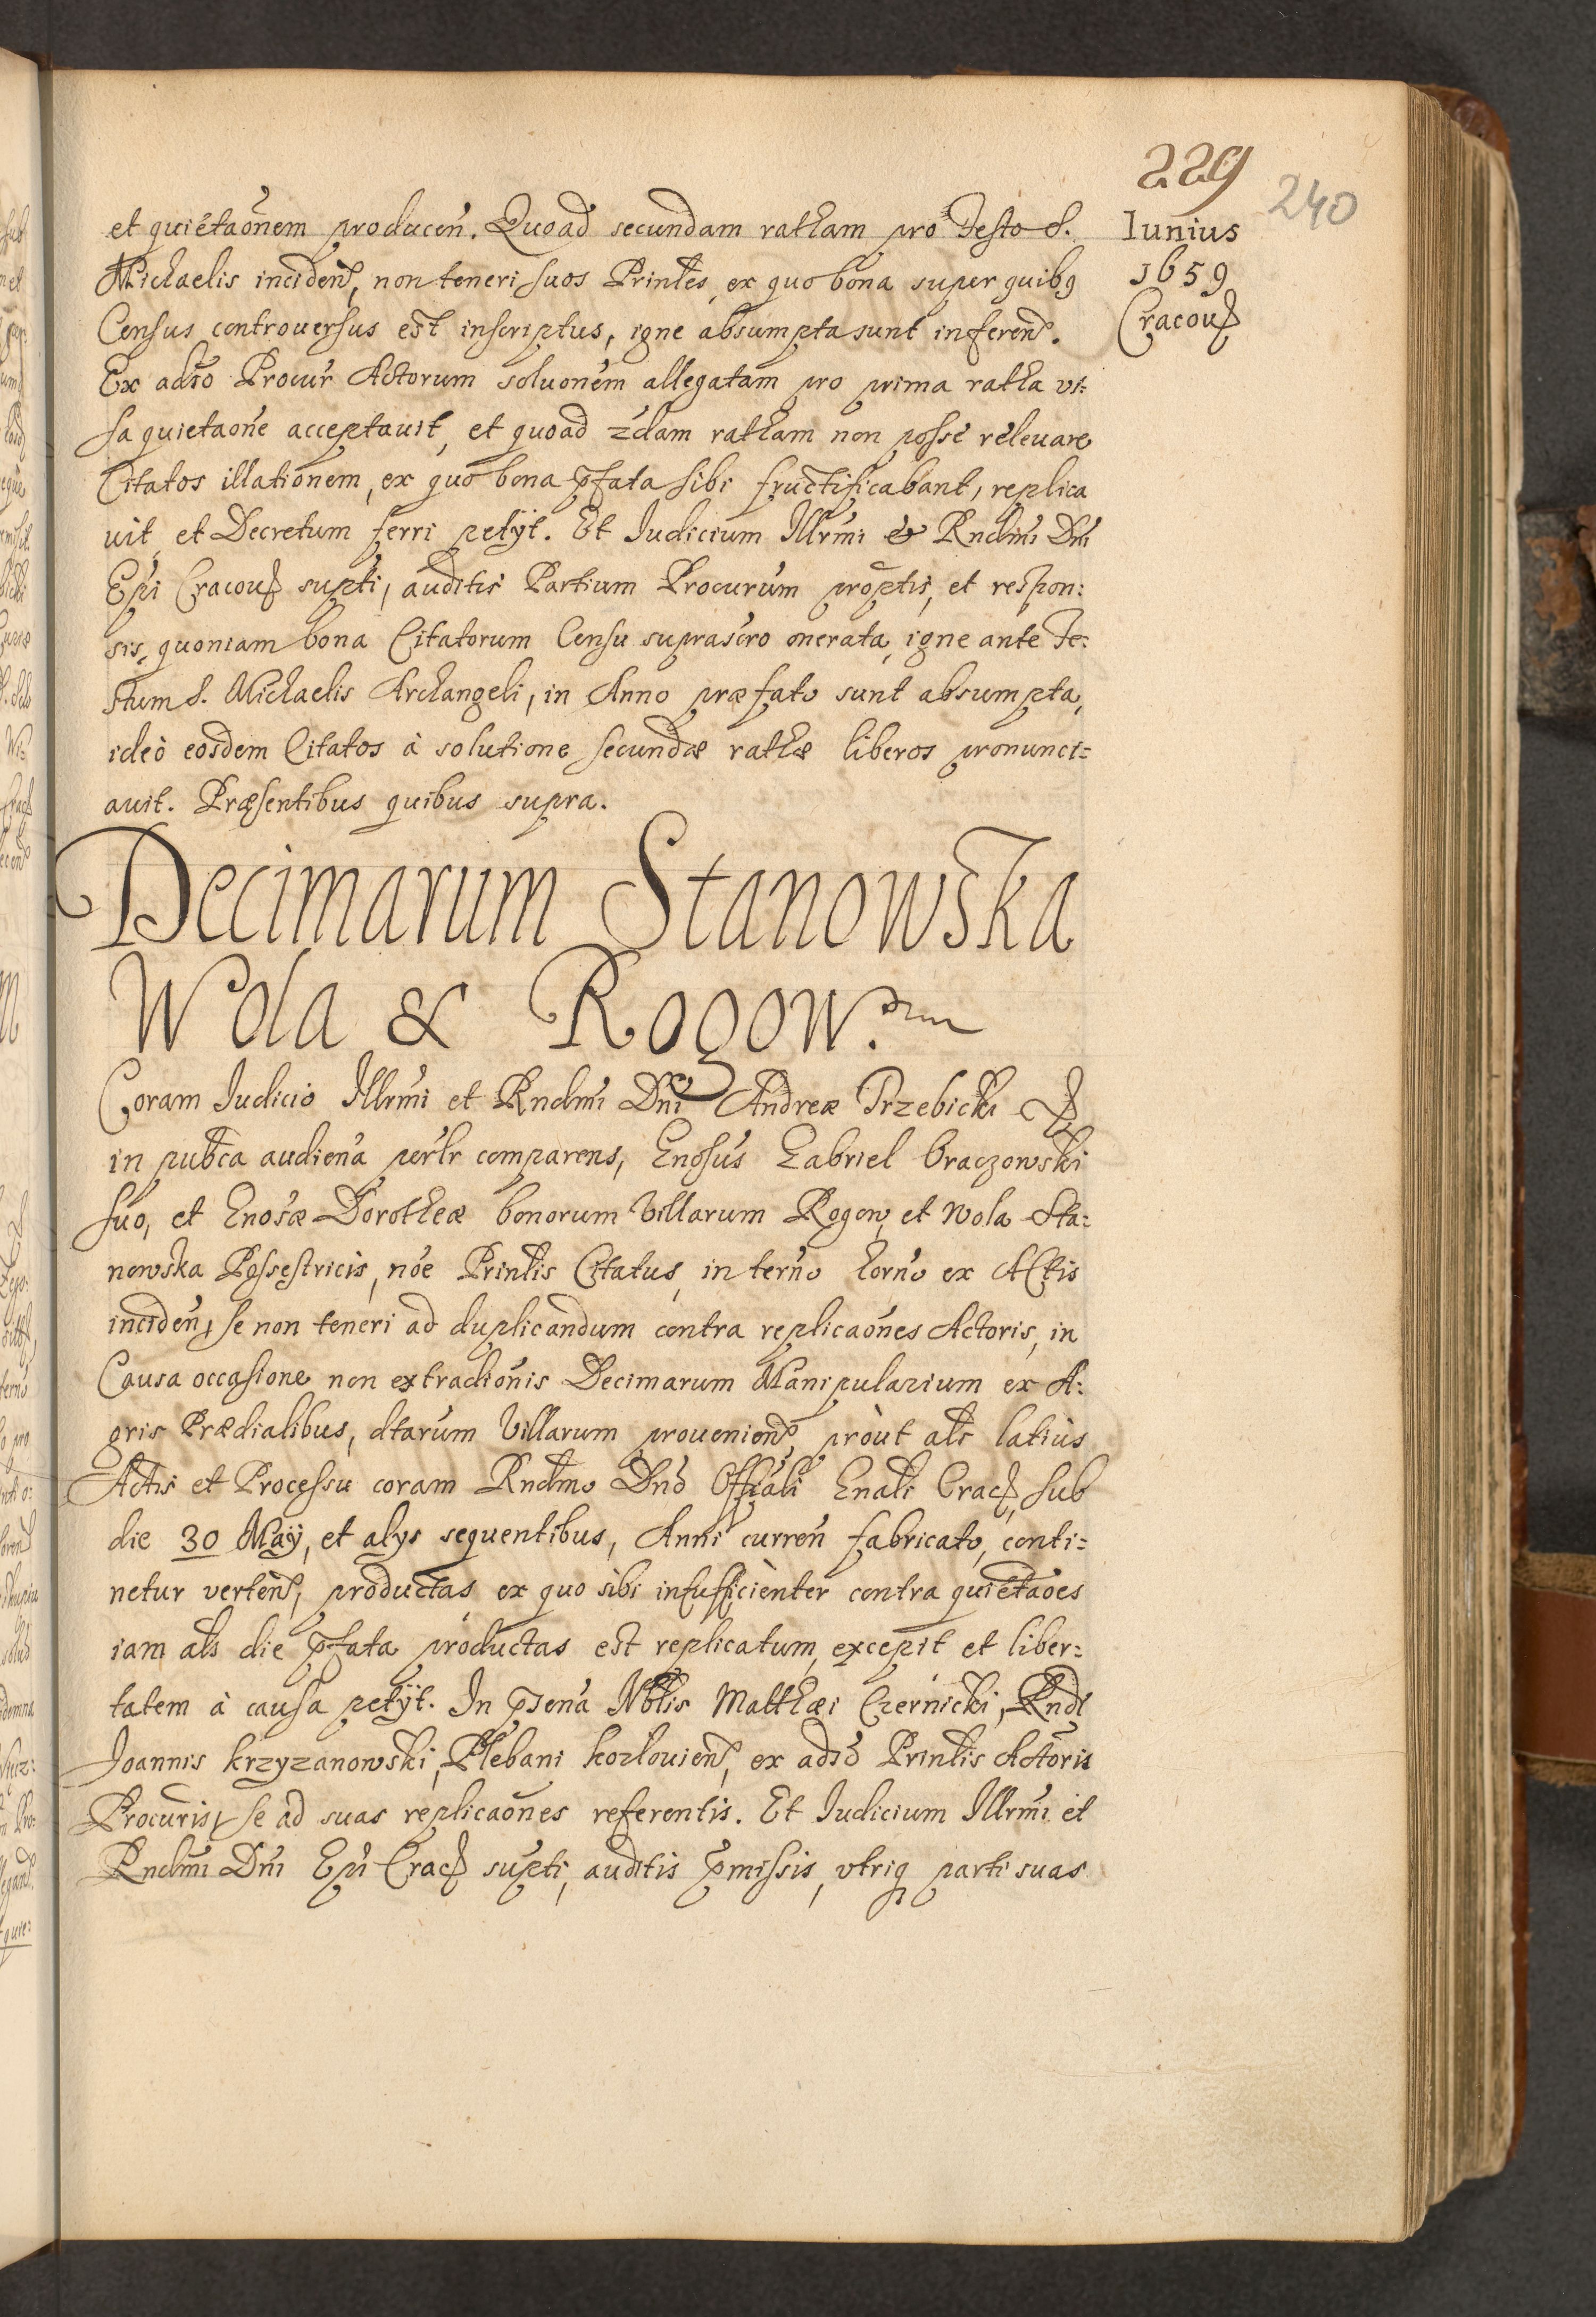 229
240
Iunius
1659
Cracou
et quietaõnem producen. Quoad secundam ratham pro Festo S.
Michaelis inciden, non teneri suos Prinles, ex quo bona super quibq
Census controuersus est inscriptus, igne absumpta sunt inferen.
Ex adso Procur Actorum soluonem allegatam pro prima ratha vi:
sa quietaone acceptauit, et quoad 2dam ratham non posse releuare
Citatos illationem, ex quo bona pfata sibi fructificabant, replica
uit, et Decretum ferri petÿt. Et Iudicium Illrmi & Rndmi Dni
Epi Cracou supti, auditis Partium Procurum proptis, et respon:
sis, quoniam bona Citatorum Censu suprascro onerata, igne ante Fe:
stum S. Michaelis Archangeli, in Anno præfato sunt absumpta,
ideò eosdem Citatos à solutione secundæ rathæ liberos pronunci=
auit. Præsentibus quibus supra.
Decimarum Stanowska
Wola & Rogow.
Coram Iudicio Illrmi et Rndmi Dni Andreæ Trzebicki
in pubca audiena perlr comparens, Gnosus Gabriel Graczowski
suo, et Gnosæ Dorotheæ bonorum Villarum Rogow, et Wola Sta:
nowska Possestricis, noe Prinlis Citatus, in terno terno ex Actis
inciden, se non teneri ad duplicandum contra replicaones Actoris, in
Causa occasione non extradionis Decimarum Manipularium ex A:
gris Prædialibus, dtarum Villarum prouenien, pròut als latiùs
Actis et Processu coram Rndmo Dno Offiali Gnali Crac, sub
die 30 Maÿ, et alys sequentibus, Anni curren fabricato, conti=
netur verten, productas ex quo sibi insufficiènter contra quietaoes
iam als die pfata productas est replicatum, excepit et liber=
tatem à causa petÿt. In psena Nblis Matthæi Czernicki, Rndi
Joannis Krzyzanowski, Plebani Kozlouien, ex adso Prinlis Actoris
Procuris, se ad suas replicaones referentis. Et Iudicium Illrmi et
Rndmi Dni Epi Crac supti, auditis pmissis, vtriq parti suas